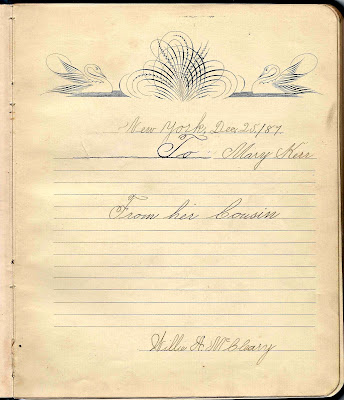 New York, Dec. 25/87
To Mary Kerr
From her Cousin
Willie A. McCleary